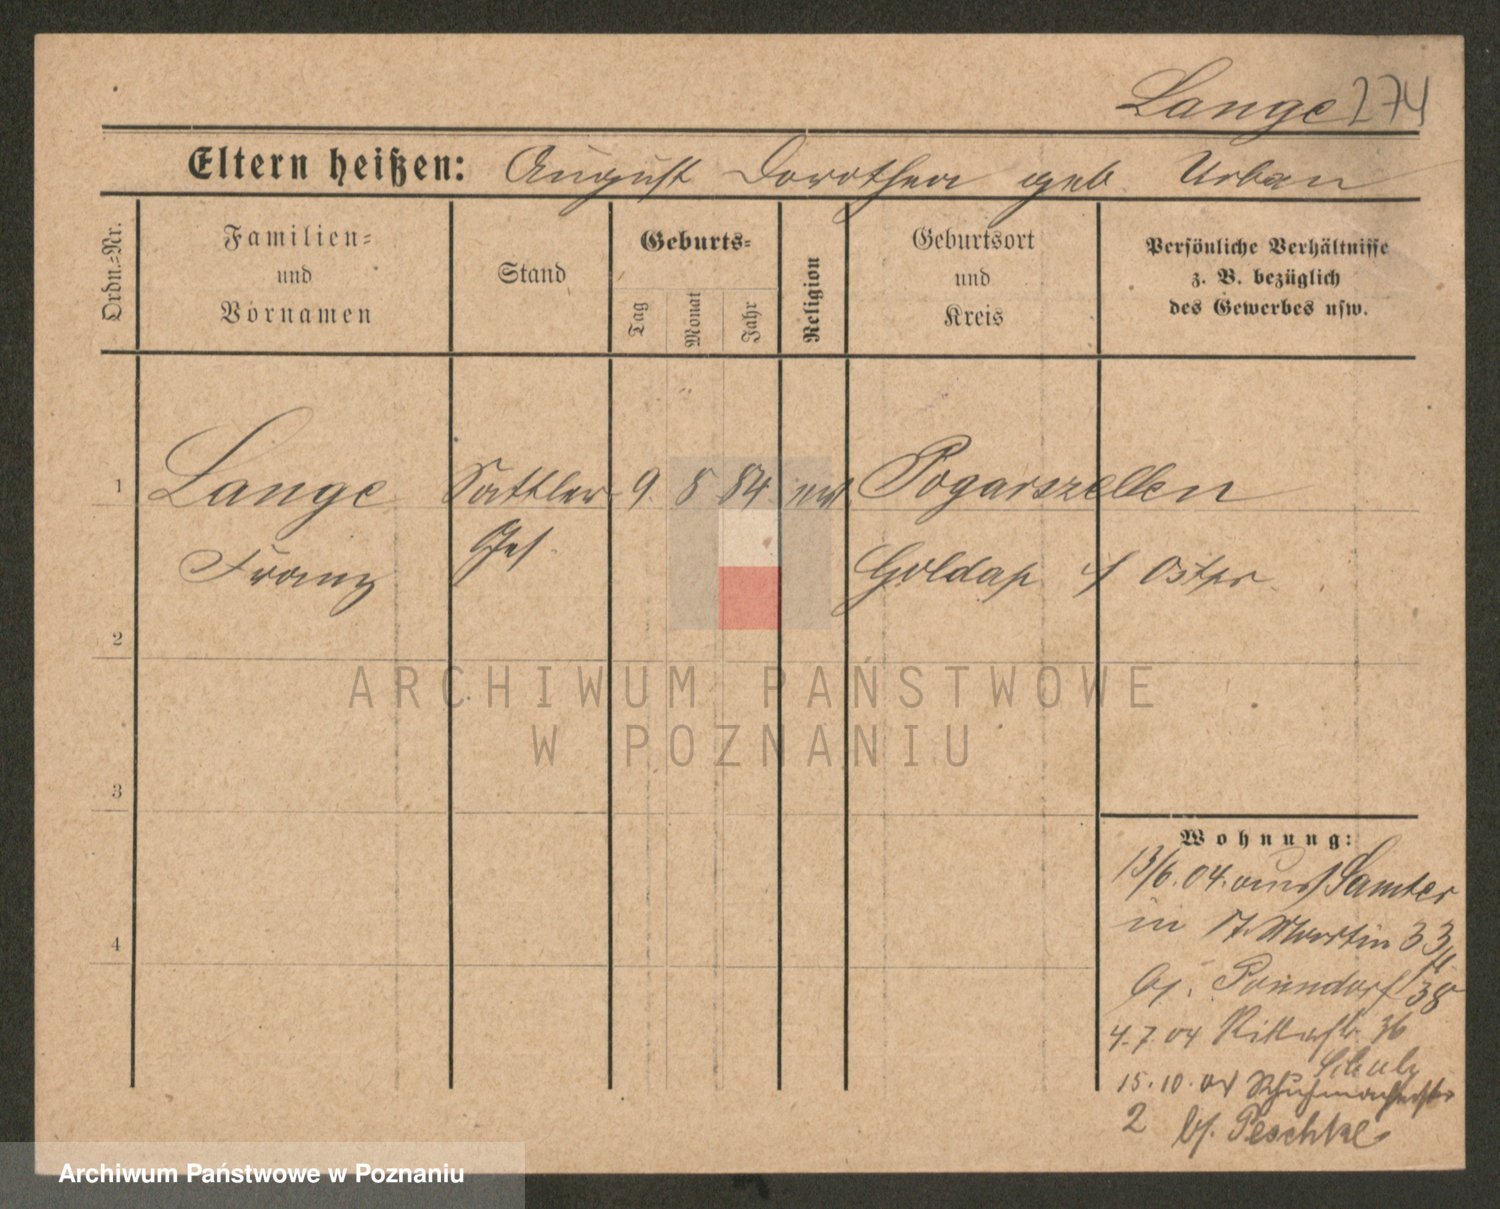 Lange 274
Eltern heißen: August Dorothea geb. Urban
Ordn.=Nr.
Familien=
und
Vornamen
Stand
Geburts=
Tag
Monat
Jahr
Religion
Geburtsort
und
Kreis
Persönliche Verhältnisse
z. B. bezüglich
des Gewerbes usw.
1 Lange Sattler 9. 8 84 ev Pogarszellen
Franz Ges. Goldap / Ostpr.
2
3
4
Wohnung:
13/6. 04. aus Samter
in St. Martin 33
bj. Ponndorf 38
4. 7 04 Ritterstr. 36
Schulz
15. 10. 04 Schuhmacherstr
2 bj. Peschke
ARCHIWUM PAŃSTWOWE
W POZNANIU
Archiwum Państwowe w Poznaniu